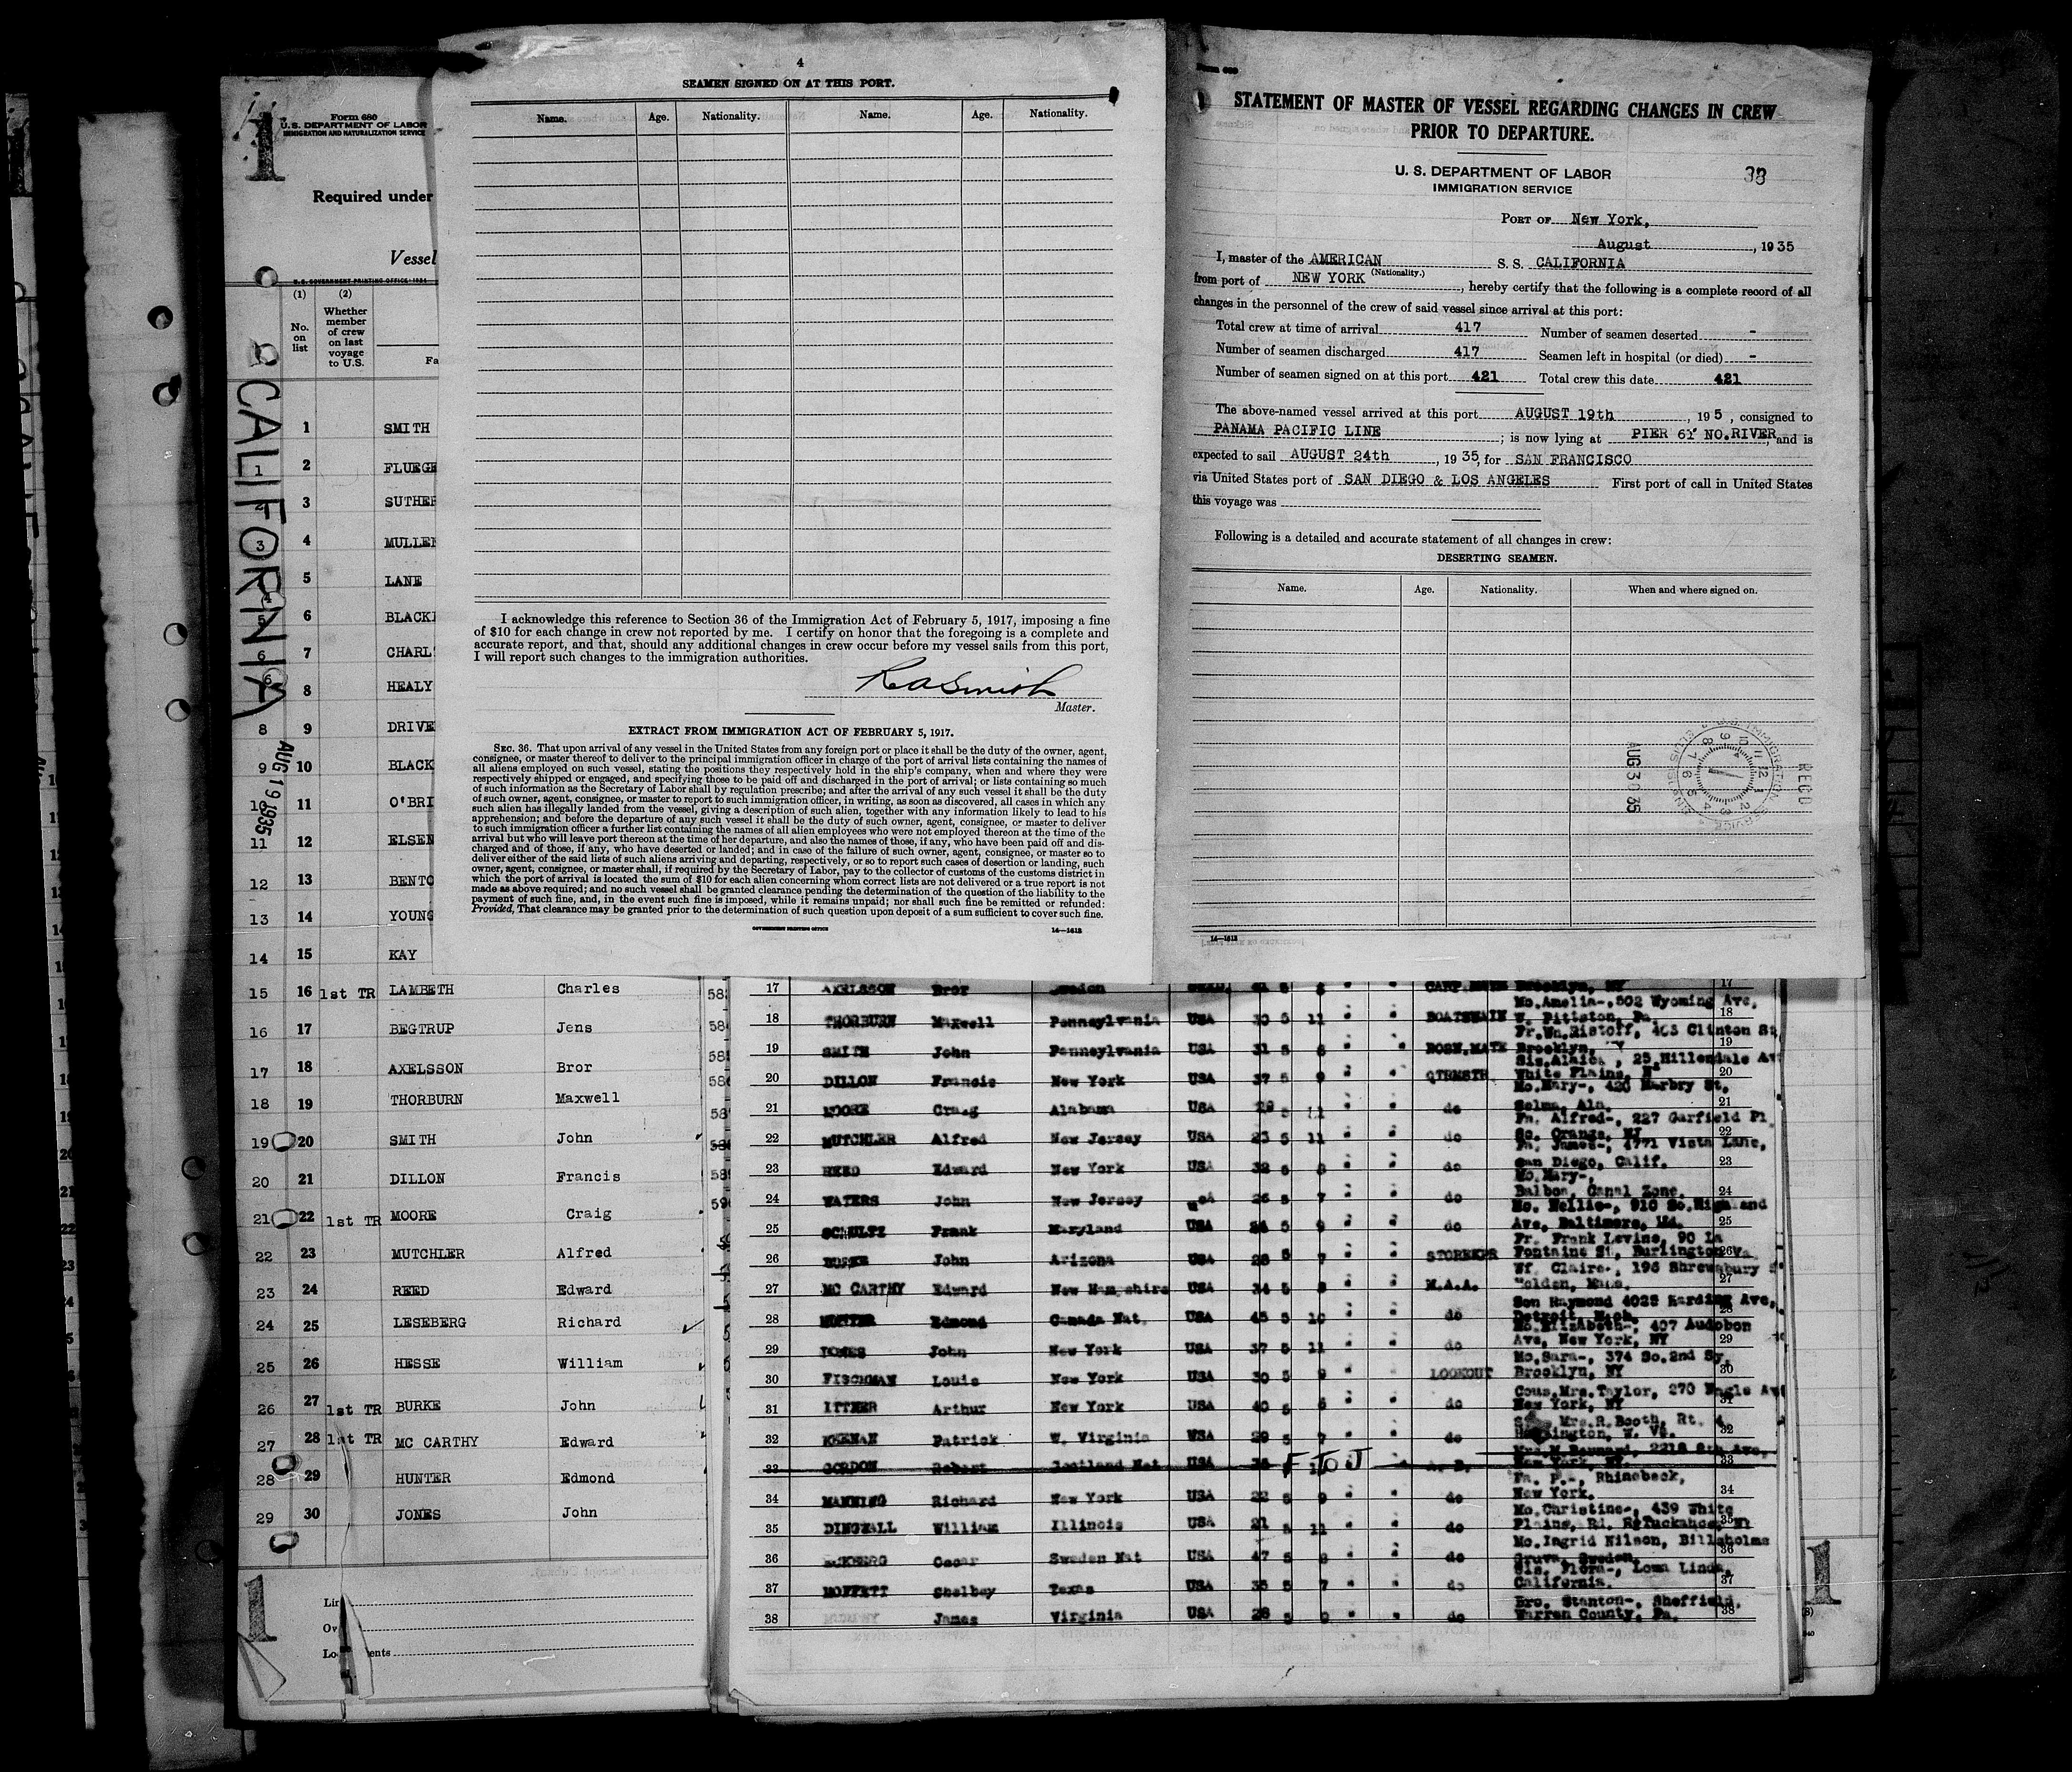 4
SEAMEN SIGNED ON AT THIS PORT.
Name. Age. Nationality. Name. Age. Nationality.
I acknowledge this reference to Section 36 of the Immigration Act of February 5, 1917, imposing a fine
of $10 for each change in crew not reported by me. I certify on honor that the foregoing is a complete and
accurate report, and that, should any additional changes in crew occur before my vessel sails from this port,
I will report such changes to the immigration authorities.
Master.
EXTRACT FROM IMMIGRATION ACT OF FEBRUARY 5, 1917.
SEC. 36. That upon arrival of any vessel in the United States from any foreign port or place it shall be the duty of the owner, agent,
consignee, or master thereof to deliver to the principal immigration officer in charge of the port of arrival lists containing the names of
all aliens employed on such vessel, stating the positions they respectively hold in the ship's company, when and where they were
respectively shipped or engaged, and specifying those to be paid off and discharged in the port of arrival; or lists containing so much
of such information as the Secretary of Labor shall by regulation prescribe; and after the arrival of any such vessel it shall be the duty
of such owner, agent, consignee, or master to report to such immigration officer, in writing, as soon as discovered, all cases in which any
such alien has illegally landed from the vessel, giving a description of such alien, together with any information likely to lead to his
apprehension; and before the departure of any such vessel it shall be the duty of such owner, agent, consignee, or master to deliver
to such immigration officer a further list containing the names of all alien employees who were not employed thereon at the time of the
arrival but who will leave port thereon at the time of her departure, and also the names of those, if any, who have been paid off and dis-
charged and of those, if any, who have deserted or landed; and in case of the failure of such owner, agent, consignee, or master so to
deliver either of the said lists of such aliens arriving and departing, respectively, or so to report such cases of desertion or landing, such
owner, agent, consignee, or master shall, if required by the Secretary of Labor, pay to the collector of customs of the customs district in
which the port of arrival is located the sum of $10 for each alien concerning whom correct lists are not delivered or a true report is not
made as above required; and no such vessel shall be granted clearance pending the determination of the question of the liability to the
payment of such fine, and, in the event such fine is imposed, while it remains unpaid; nor shall such fine be remitted or refunded:
Provided, That clearance may be granted prior to the determination of such question upon deposit of a sum sufficient to cover such fine.
GOVERNMENT PRINTING OFFICE 14—1613
STATEMENT OF MASTER OF VESSEL REGARDING CHANGES IN CREW
PRIOR TO DEPARTURE.
U. S. DEPARTMENT OF LABOR
IMMIGRATION SERVICE
38
PORT OF New York,
August , 1935
I, master of the AMERICAN S. S. CALIFORNIA
(Nationality.)
from port of NEW YORK , hereby certify that the following is a complete record of all
changes in the personnel of the crew of said vessel since arrival at this port:
Total crew at time of arrival 417 Number of seamen deserted -
Number of seamen discharged 417 Seamen left in hospital (or died) -
Number of seamen signed on at this port 421 Total crew this date 421
The above-named vessel arrived at this port AUGUST 19th , 195 , consigned to
PANAMA PACIFIC LINE ; is now lying at PIER 61 NO.RIVER, and is
expected to sail AUGUST 24th , 1935, for SAN FRANCISCO
via United States port of SAN DIEGO & LOS ANGELES First port of call in United States
this voyage was
Following is a detailed and accurate statement of all changes in crew:
DESERTING SEAMEN.
Name. Age. Nationality. When and where signed on.
REC'D
AUG 30 35
14—1613
1
Form 680
U.S. DEPARTMENT OF LABOR
IMMIGRATION AND NATURALIZATION SERVICE
Required under
Vessel
U. S. GOVERNMENT PRINTING OFFICE: 1934
(1) (2)
No. on list
Whether member of crew on last voyage to U.S.
Fa
CALIFORNIA
AUG 19 1935
1 SMITH
1 2
2 3
3 4
5 LANE
5 6
6 7
6 8 HEALY
8 9
9 10
10 11
11 12
12 13
13 14
14 15 KAY
15 16 1st TR LAMBETH Charles
16 17 BEGTRUP Jens
17 18 AXELSSON Bror
18 19 THORBURN Maxwell
19 20 SMITH John
20 21 DILLON Francis
21 22 1st TR MOORE Craig
22 23 MUTCHLER Alfred
23 24 REED Edward
24 25 LESEBERG Richard
25 26 HESSE William
26 27 1st TR BURKE John
27 28 1st TR MC CARTHY Edward
28 29 HUNTER Edmond
29 30 JONES John
1
17 AXELSSON Bror Sweden Brooklyn, NY 17
Mo.Amelia-, 802 Wyoming Ave,
18 THORBURN Maxwell Pennsylvania USA 30 5 11 BOATSWAIN W. Pittston, Pa. 18
Fr.Wm.Ristoff, 405 Clinton St,
19 SMITH John Pennsylvania USA 31 5 8 BOSN.MATE Brooklyn, 19
25 Hillendale Av
20 DILLON Francis New York USA 37 5 9 QTRMSTR White Plains, 20
Mo.Mary-, 426 Marbry St,
21 MOORE Craig Alabama USA 29 5 11 do Selma, Ala. 21
Fa. Alfred-, 227 Garfield Pl
22 MUTCHLER Alfred New Jersey USA 23 5 11 do So. Orange, NJ 22
Fa. James-, 4771 Vista Lane,
23 REED Edward New York USA 32 5 8 do San Diego, Calif. 23
Mo.Mary-,
24 WATERS John New Jersey 26 5 7 do Balboa, Canal Zone. 24
Mo. Nellie-, 910 So.Highland
25 SCHULTZ Frank Maryland USA 24 5 9 do Ave, Baltimore, Md. 25
Fr. Frank Levine, 90 La
26 John Arizona USA 28 5 7 STOREKPR Fontaine St, Burlington 26
Wf. Claire-, 196 Shrewsbury
27 MC CARTHY Edward New Hampshire USA 34 5 8 M.A.A. Holden, Mass. 27
Son Raymond 4025 Harding Ave,
28 HUNTER Edmond Canada Nat. USA 45 5 10 do Detroit, Mich. 28
Mo.Elizabeth-, 407 Audobon
29 JONES John New York USA 37 5 11 do Ave, New York, NY 29
Mo.Sara-, 374 So.2nd Sy,
30 FISCHMAN Louis New York USA 30 5 9 LOOKOUT Brooklyn, NY 30
Cous.Mrs.Taylor, 270 Nagle Av
31 ITTNER Arthur New York USA 40 5 6 do New York, NY 31
Mrs.R.Booth, Rt.
32 KEENAN Patrick W. Virginia USA 29 5 7 do 32
2218 8th Ave,
33 GORDON Robert Scotland Nat USA F To J New York, NY 33
Fa. P.-, Rhinebeck,
34 MANNING Richard New York USA 22 5 9 do New York. 34
Mo.Christine-, 439 White
35 DINGWALL William Illinois USA 21 5 11 do Plains, Rd. 35
Mo.Ingrid Nilson, Billsholms
36 Oscar Sweden Nat USA 47 5 8 do Gruva, Sweden. 36
Sis. Flora-, Loma Linda,
37 MOFFETT Shelbey Texas USA 35 5 7 do California. 37
Bro. Stanton-, Sheffield,
38 James Virginia USA 28 5 9 do Warren County, Pa. 38
1